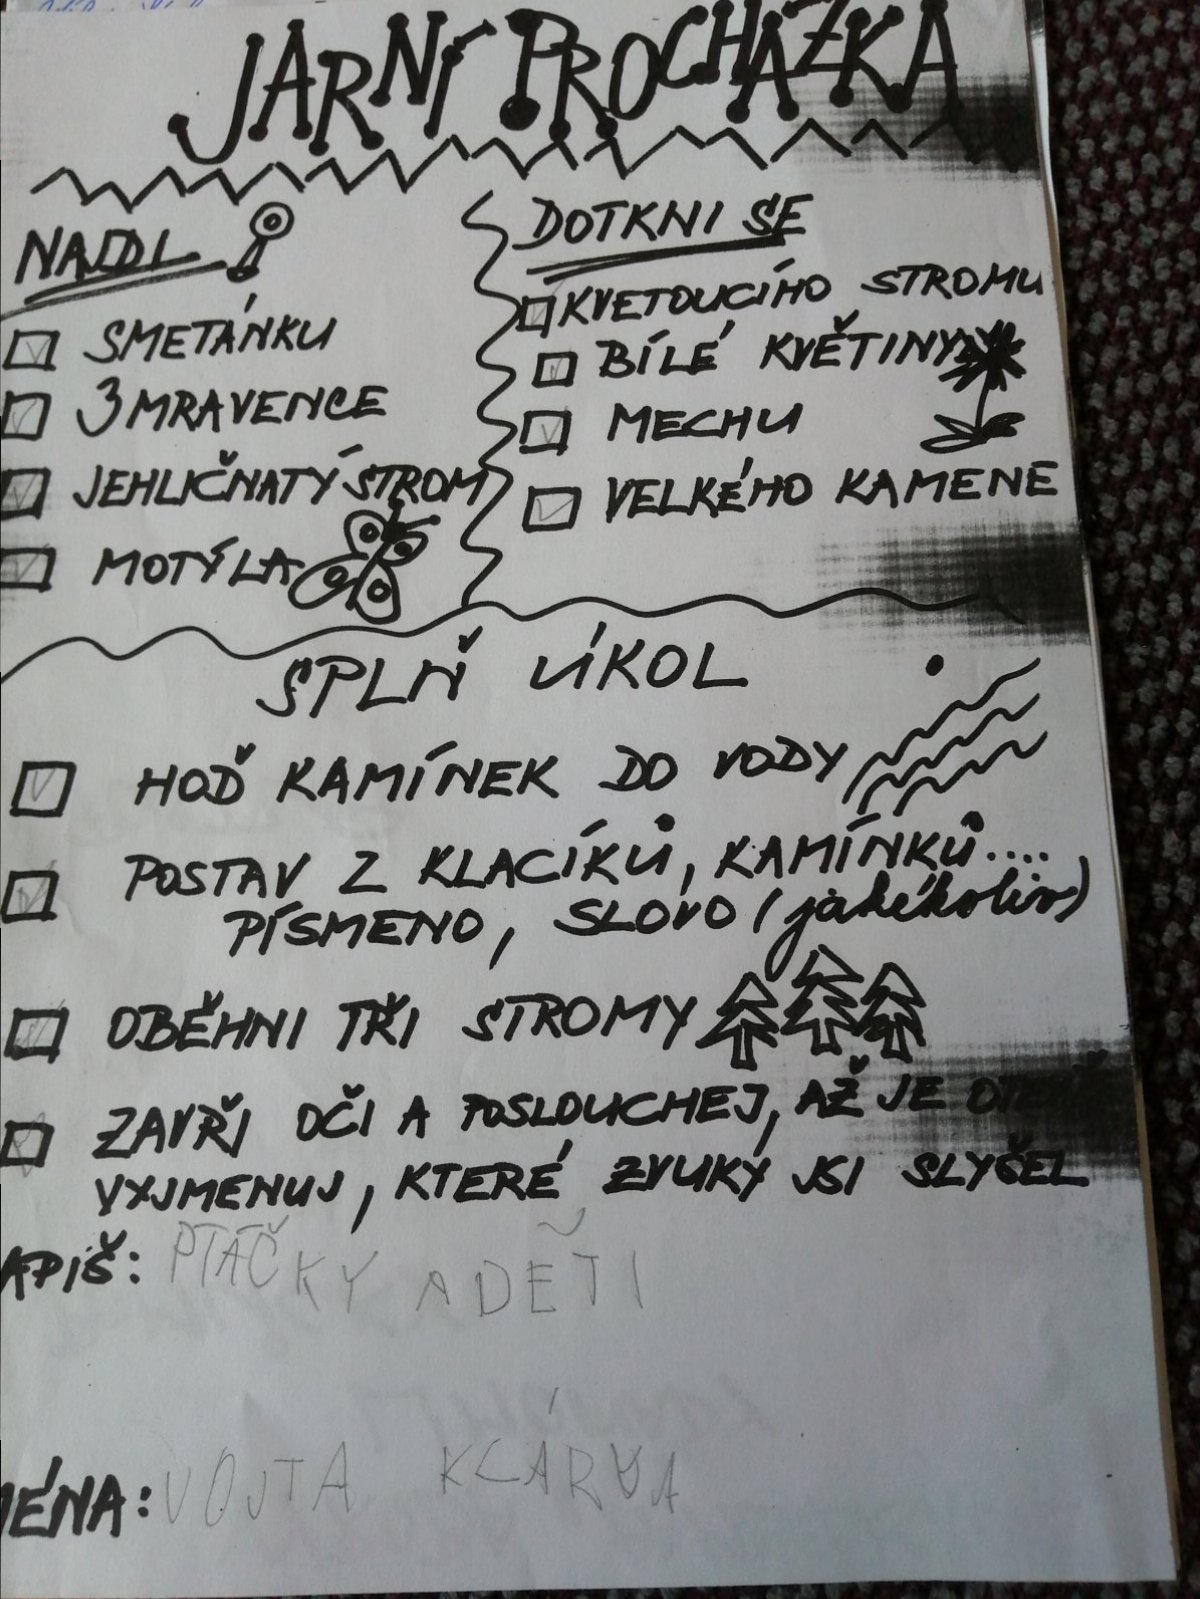 JARNÍ PROCHÁZKA
NAJDI
SMETÁNKU
3 MRAVENCE
JEHLIČNATÝ STROM
MOTÝLA
DOTKNI SE
KVETOUCÍHO STROMU
BÍLÉ KVĚTINY
MECHU
VELKÉHO KAMENE
SPLŇ ÚKOL
HOĎ KAMÍNEK DO VODY
POSTAV Z KLACÍKŮ, KAMÍNKŮ....,
PÍSMENO, SLOVO (jakékoliv)
OBĚHNI TŘI STROMY
ZAVŘI OČI A POSLOUCHEJ, AŽ JE
VYJMENUJ, KTERÉ ZVUKY JSI SLYŠEL
APIŠ: PTÁČKY A DĚTI
MÉNA: VOJTA